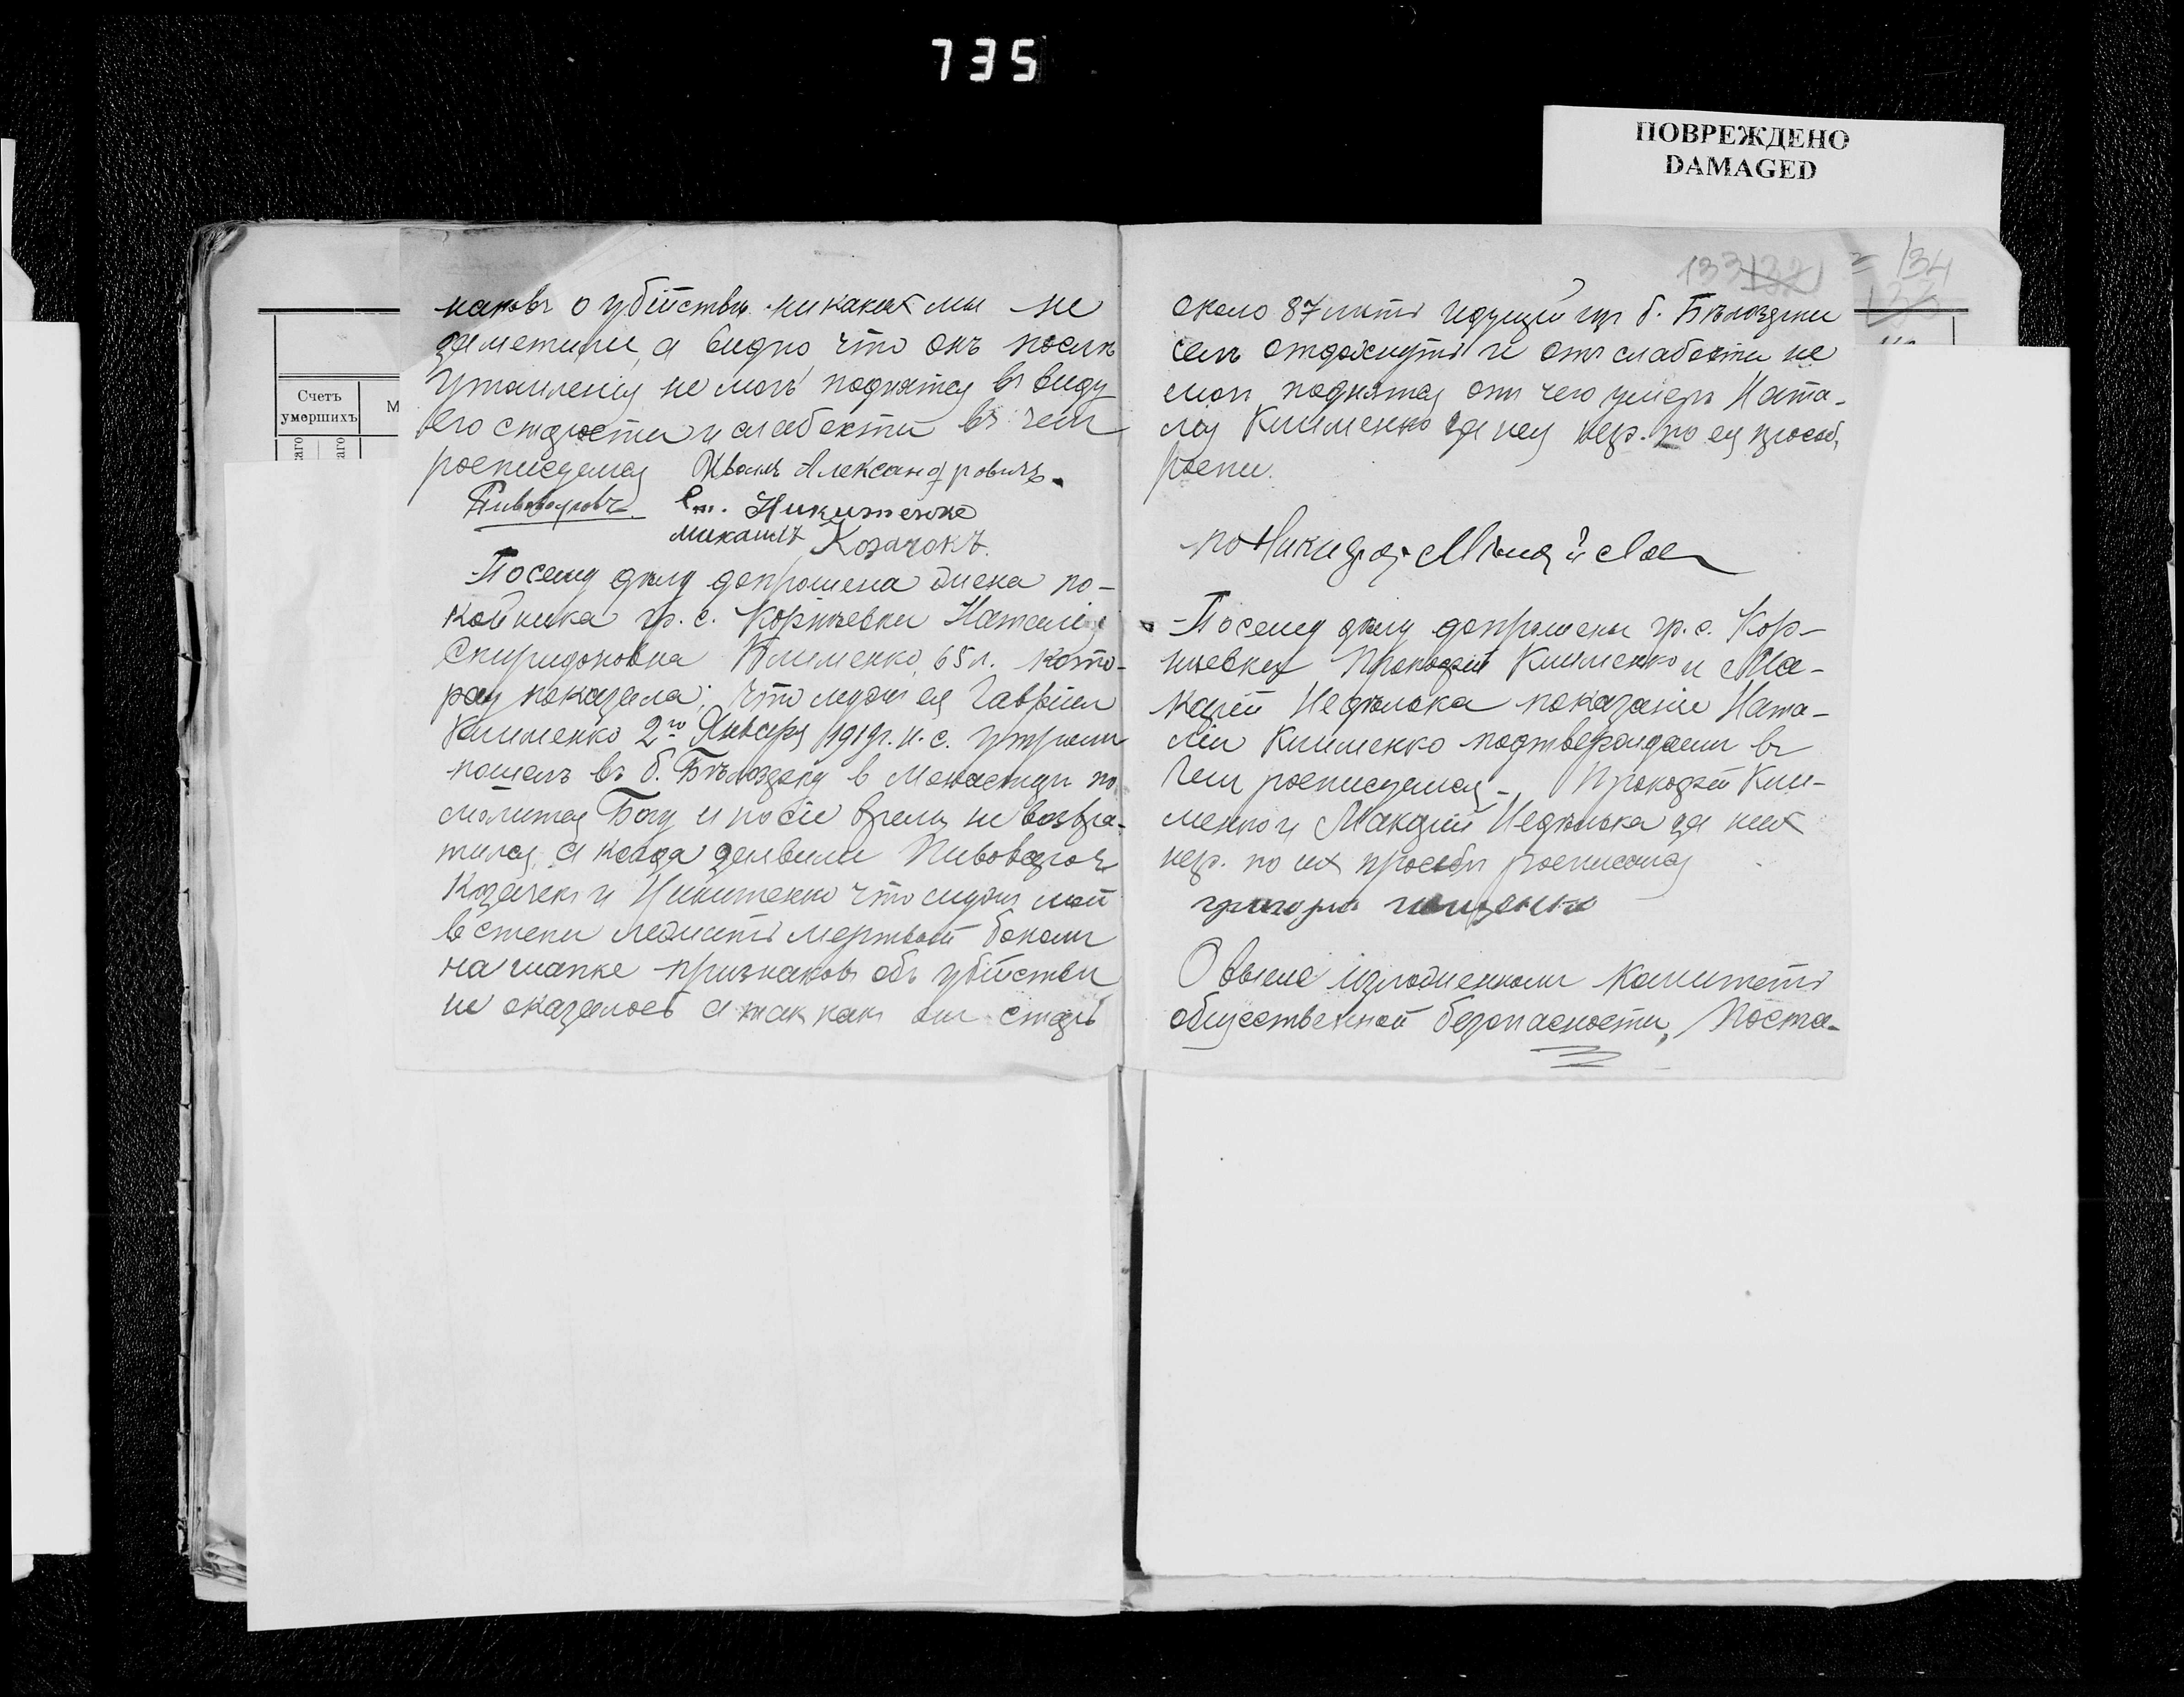 735
ПОВРЕЖДЕНО
DAMAGED
133 134
Счетъ
умершихъ
М
наковъ о убійствѣ никаких мы не
заметили, а видно что онъ послѣ
утомленія не могъ поднятся в виду
его старости и слабости въ чем
росписуемся Иванъ Александровичъ
Пивоваровъ Ст. Никитенко
михаилъ Козачокъ.
По сему дѣлу допрошена жена по-
койника гр. с. Корнѣевки Наталія
Спиридоновна Клименко, 65 л. кото-
рая показала: что мужъ ея Гавріил
Клименко 2го Января 1919 г. н. с. утром
пошелъ въ б. Бѣлоздку в Монастир по
молится Богу и по сіе время не возвра-
тился, а когда заявили Пивоваров
Козачек и Никитенко что мужъ мой
в степи лежитъ мертвый боком
на шапке признаковъ объ убійстве
не оказалось а так какъ он старъ
около 87 лѣтъ идущій изъ б. Бѣлоздки
селъ отдохнуть и отъ слабости не
могъ поднятся от чего умеръ Ната-
лія Клименко за нея негр. по ея прозб.
роспи.
По сему дѣлу допрошены гр. с. Кор-
нѣевки Прокофій Клименко и Ма-
карій Недѣлька показаніе Ната-
ліи Клименко подтверждаем в
чем росписуемся - Прокофій Кли-
менко и Макарій Недѣлька за них
негр. по их просьбѣ росписался
О выше изложенномъ Комитетъ
общественной безопасности, Поста-